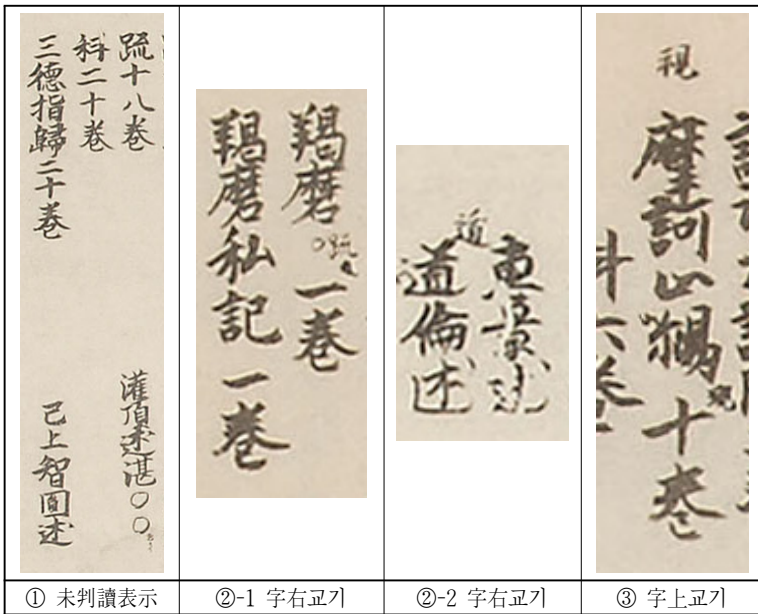 疏十八卷 灌頂述湛○○
科二十卷
三德指歸二十卷 已上智圓述
羯磨○疏一卷
羯磨私記一卷
惠景述
道倫述
摩訶止
十卷
六卷
① 未判讀表示
②-1 字右교기
②-2 字右교기
③ 字上교기